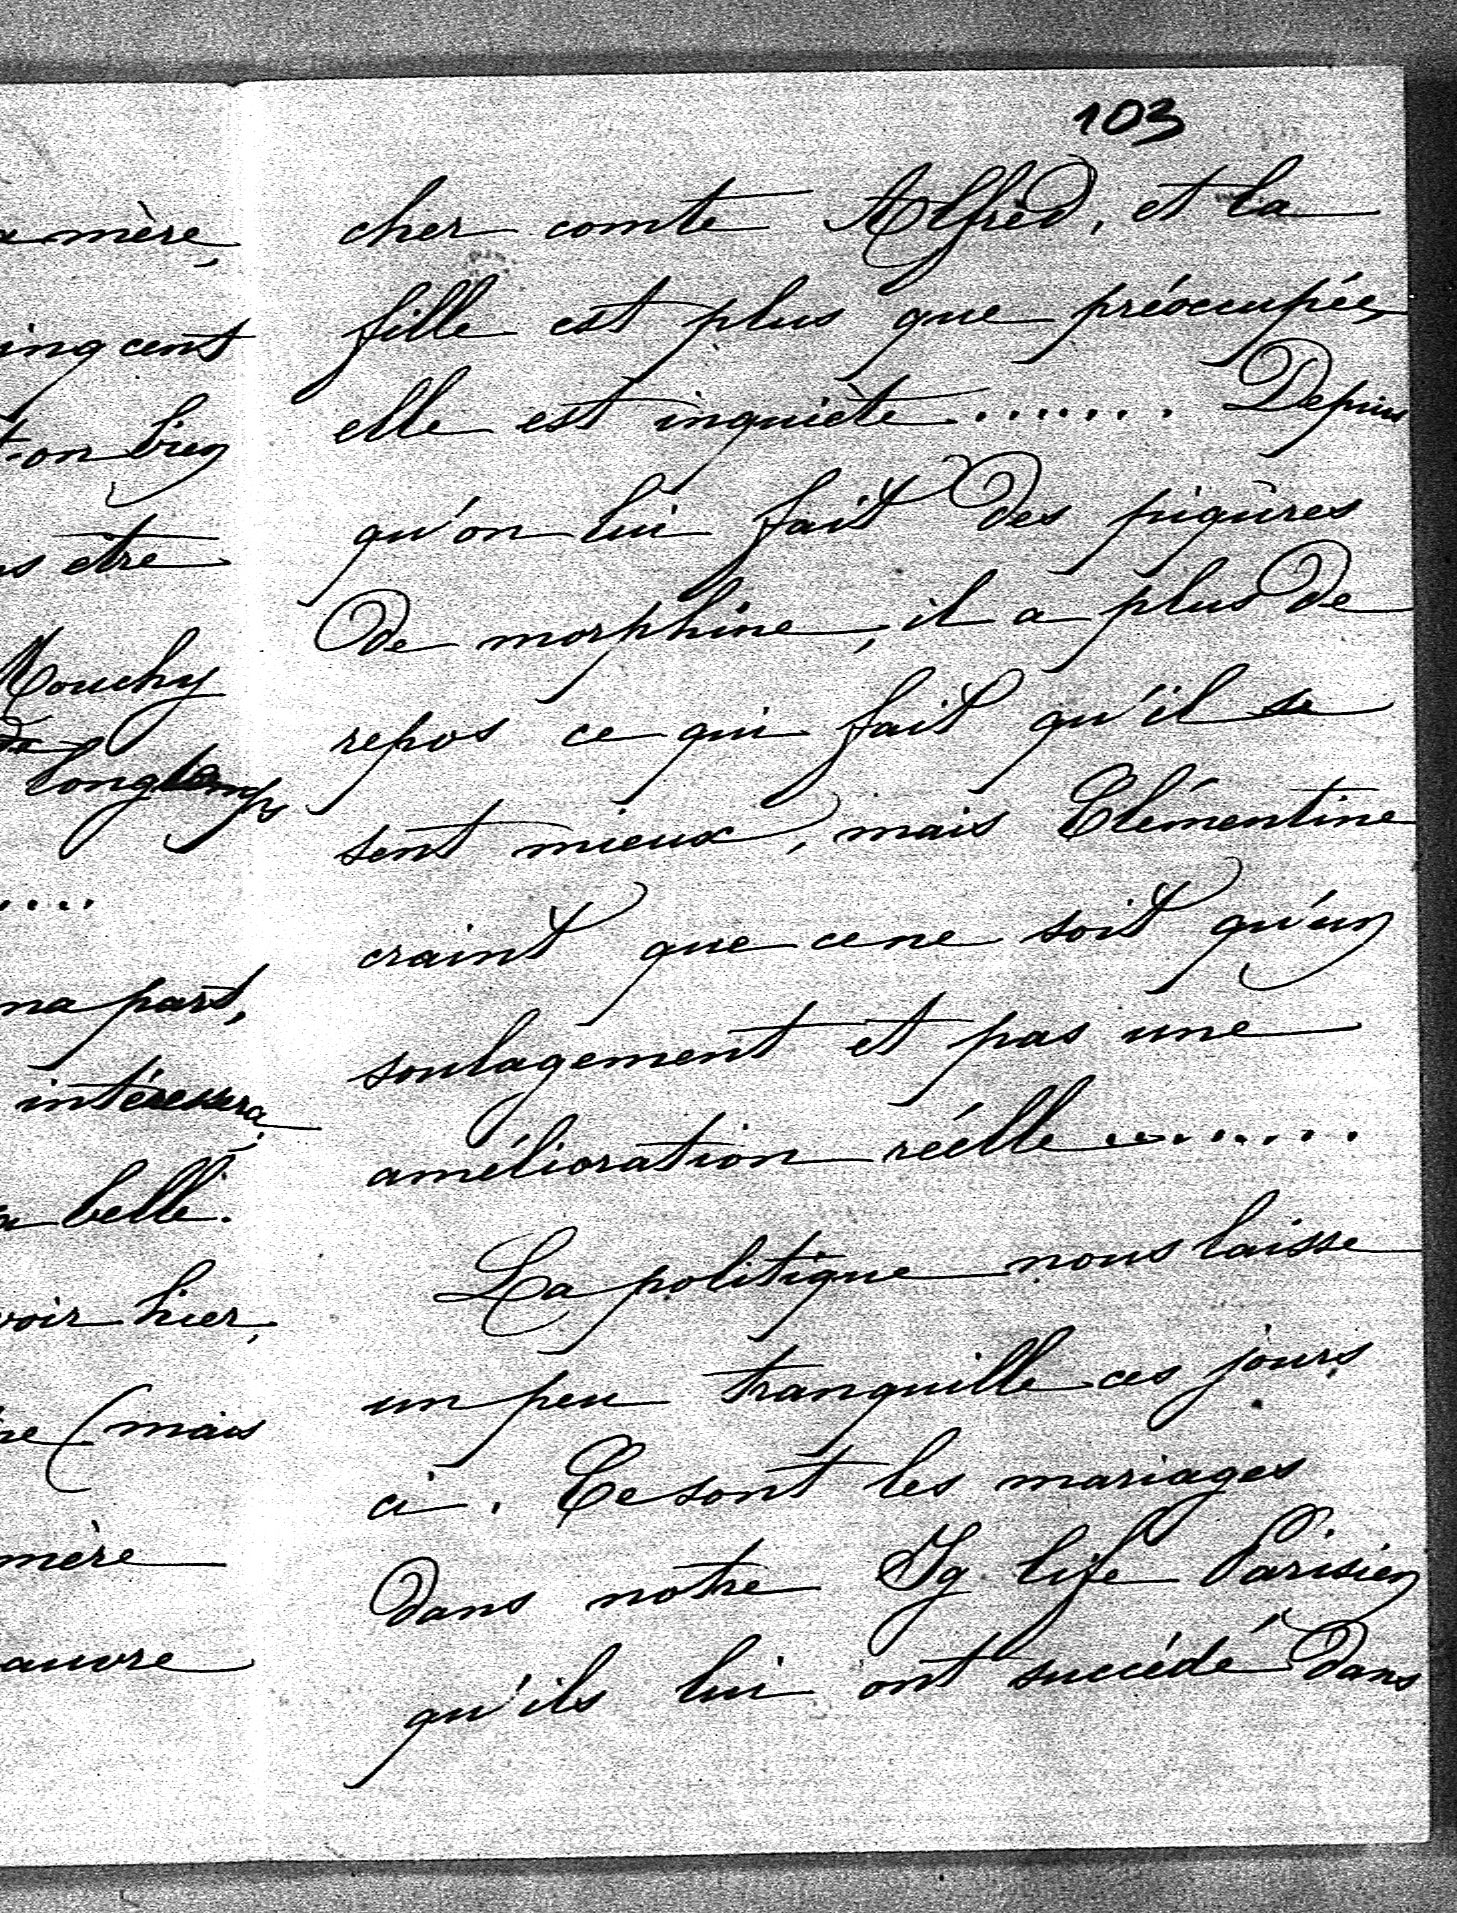 a mère,
inq cent
t-on bien
s être
Mouchy
de
longtemps
....
ma part,
intéressera
a belle.
voir hier,
(mais
mère
auvre
103
cher comte Alfred, et la
fille est plus que préoccupée,
elle est inquiète ....... Depuis
qu'on lui fait des piqûres
de morphine, il a plus de
repos ce qui fait qu'il se
sent mieux, mais Clémentine
craint que ce ne soit qu'un
soulagement et pas une
amélioration réelle ........
La politique nous laisse
un peu tranquille ces jours
ci. Ce sont les mariages
dans notre Ig. life Parisien
qu'ils lui ont succédé dans